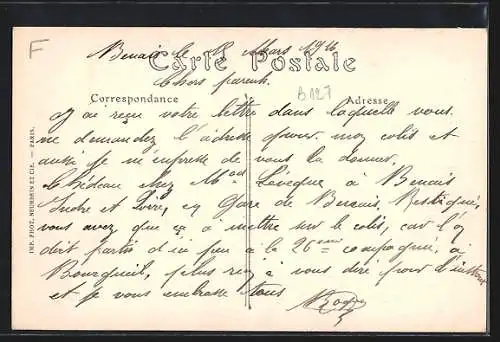 F
Benais le 8 Mars 1916
Carte Postale
Chers parents.
B127
Correspondance
Adresse
J'ai reçu votre lettre dans laquelle vous
me demandez l'adresse pour moy colis et
aussi je m'empresse de vous la donner.
chez Mme Lévêque à Benais
Indre et Loire, en Gare de Benais, Restigné,
vous avez que ça a mettre sur le colis, car l'on
doit partir d'ici peu à la 26eme compagnie, à
Bourgueil, plus rien à vous dire pour l'instant
et je vous embrasse tous
IMP. PHOT. NEURDEIN ET CIE. — PARIS.